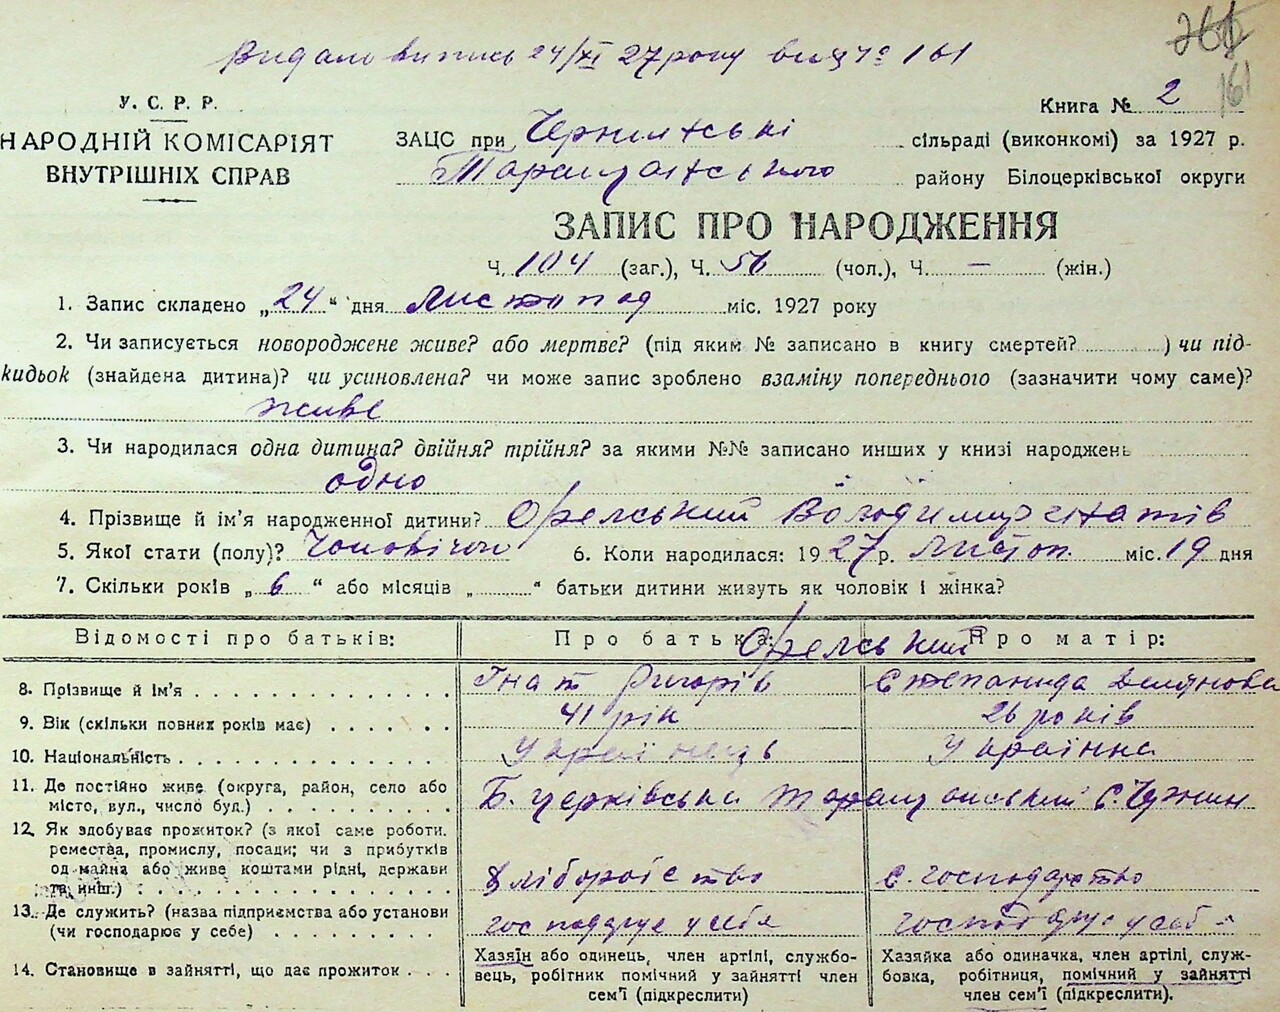 Видано випись 24/XI 27 року вищ чо 161
161
У. С. Р. Р.
НАРОДНІЙ КОМІСАРІЯТ
ВНУТРІШНІХ СПРАВ
Книга № 2
ЗАЦС при сільраді (виконкомі) за 1927 р.
Таращанського району Білоцерківської округи
ЗАПИС ПРО НАРОДЖЕННЯ
Ч. 104 (заг.), Ч. 56 (чол.), Ч. — (жін.)
1. Запис складено „24“ дня Листопад міс. 1927 року
2. Чи записується новороджене живе? або мертве? (під яким № записано в книгу смертей?..........) чи під-
кидьок (знайдена дитина)? чи усиновлена? чи може запис зроблено взаміну попереднього (зазначити чому саме)?
живе
3. Чи народилася одна дитина? двійня? трійня? за якими №№ записано инших у книзі народжень
одно
4. Прізвище й ім'я народженної дитини? Орелський Володимир Гнатів
5. Якої стати (полу)? Чоловічої 6. Коли народилася: 1927 р. Листоп. міс. 19 дня
7. Скільки років „6“ або місяців „..........“ батьки дитини живуть як чоловік і жінка?
Відомості про батьків: Про батька: Про матір:
Орелський
8. Прізвище й ім'я Гнат Григорів Степанида
9. Вік (скільки повних років має) 41 рік 26 років
10. Національність Українець Українка
11. Де постійно живе (округа, район, село або
місто, вул., число буд.) Б. Церківська Таращанський с. Чернин
12. Як здобуває прожиток? (з якої саме роботи.
ремества, промислу, посади; чи з прибутків
од майна або живе коштами рідні, держави
та инш.) Хліборобство с. господарство
13. Де служить? (назва підприємства або установи
(чи господарює у себе) господарує у себе господарує у себе
14. Становище в зайнятті, що дає прожиток . . . Хазяїн або одинець, член артілі, службо-
вець, робітник помічний у зайнятті член
сем'ї (підкреслити)
Хазяйка або одиначка, член артілі, служ-
бовка, робітниця, помічний у зайнятті
член сем'ї (підкреслити).